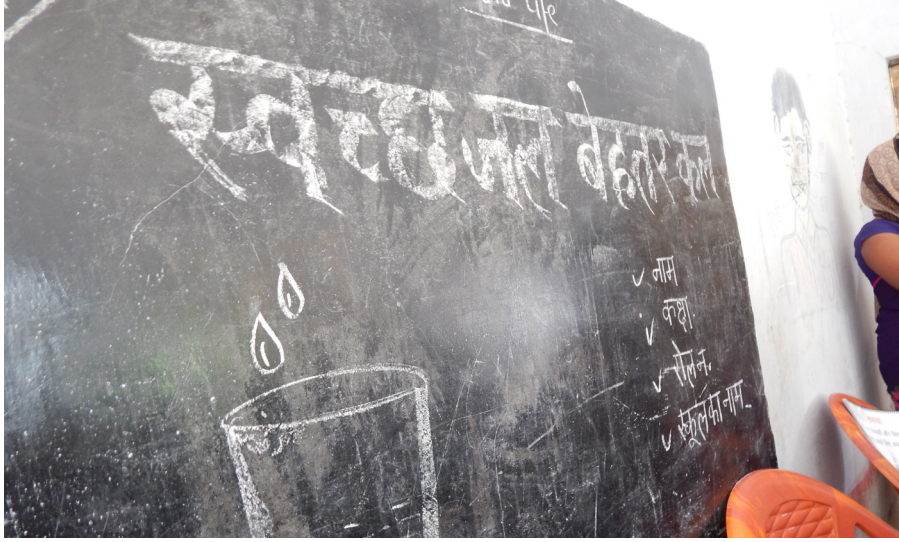 स्वच्छ जल बेहतर कल
नाम
कक्षा
रोल न.
स्कूल का नाम